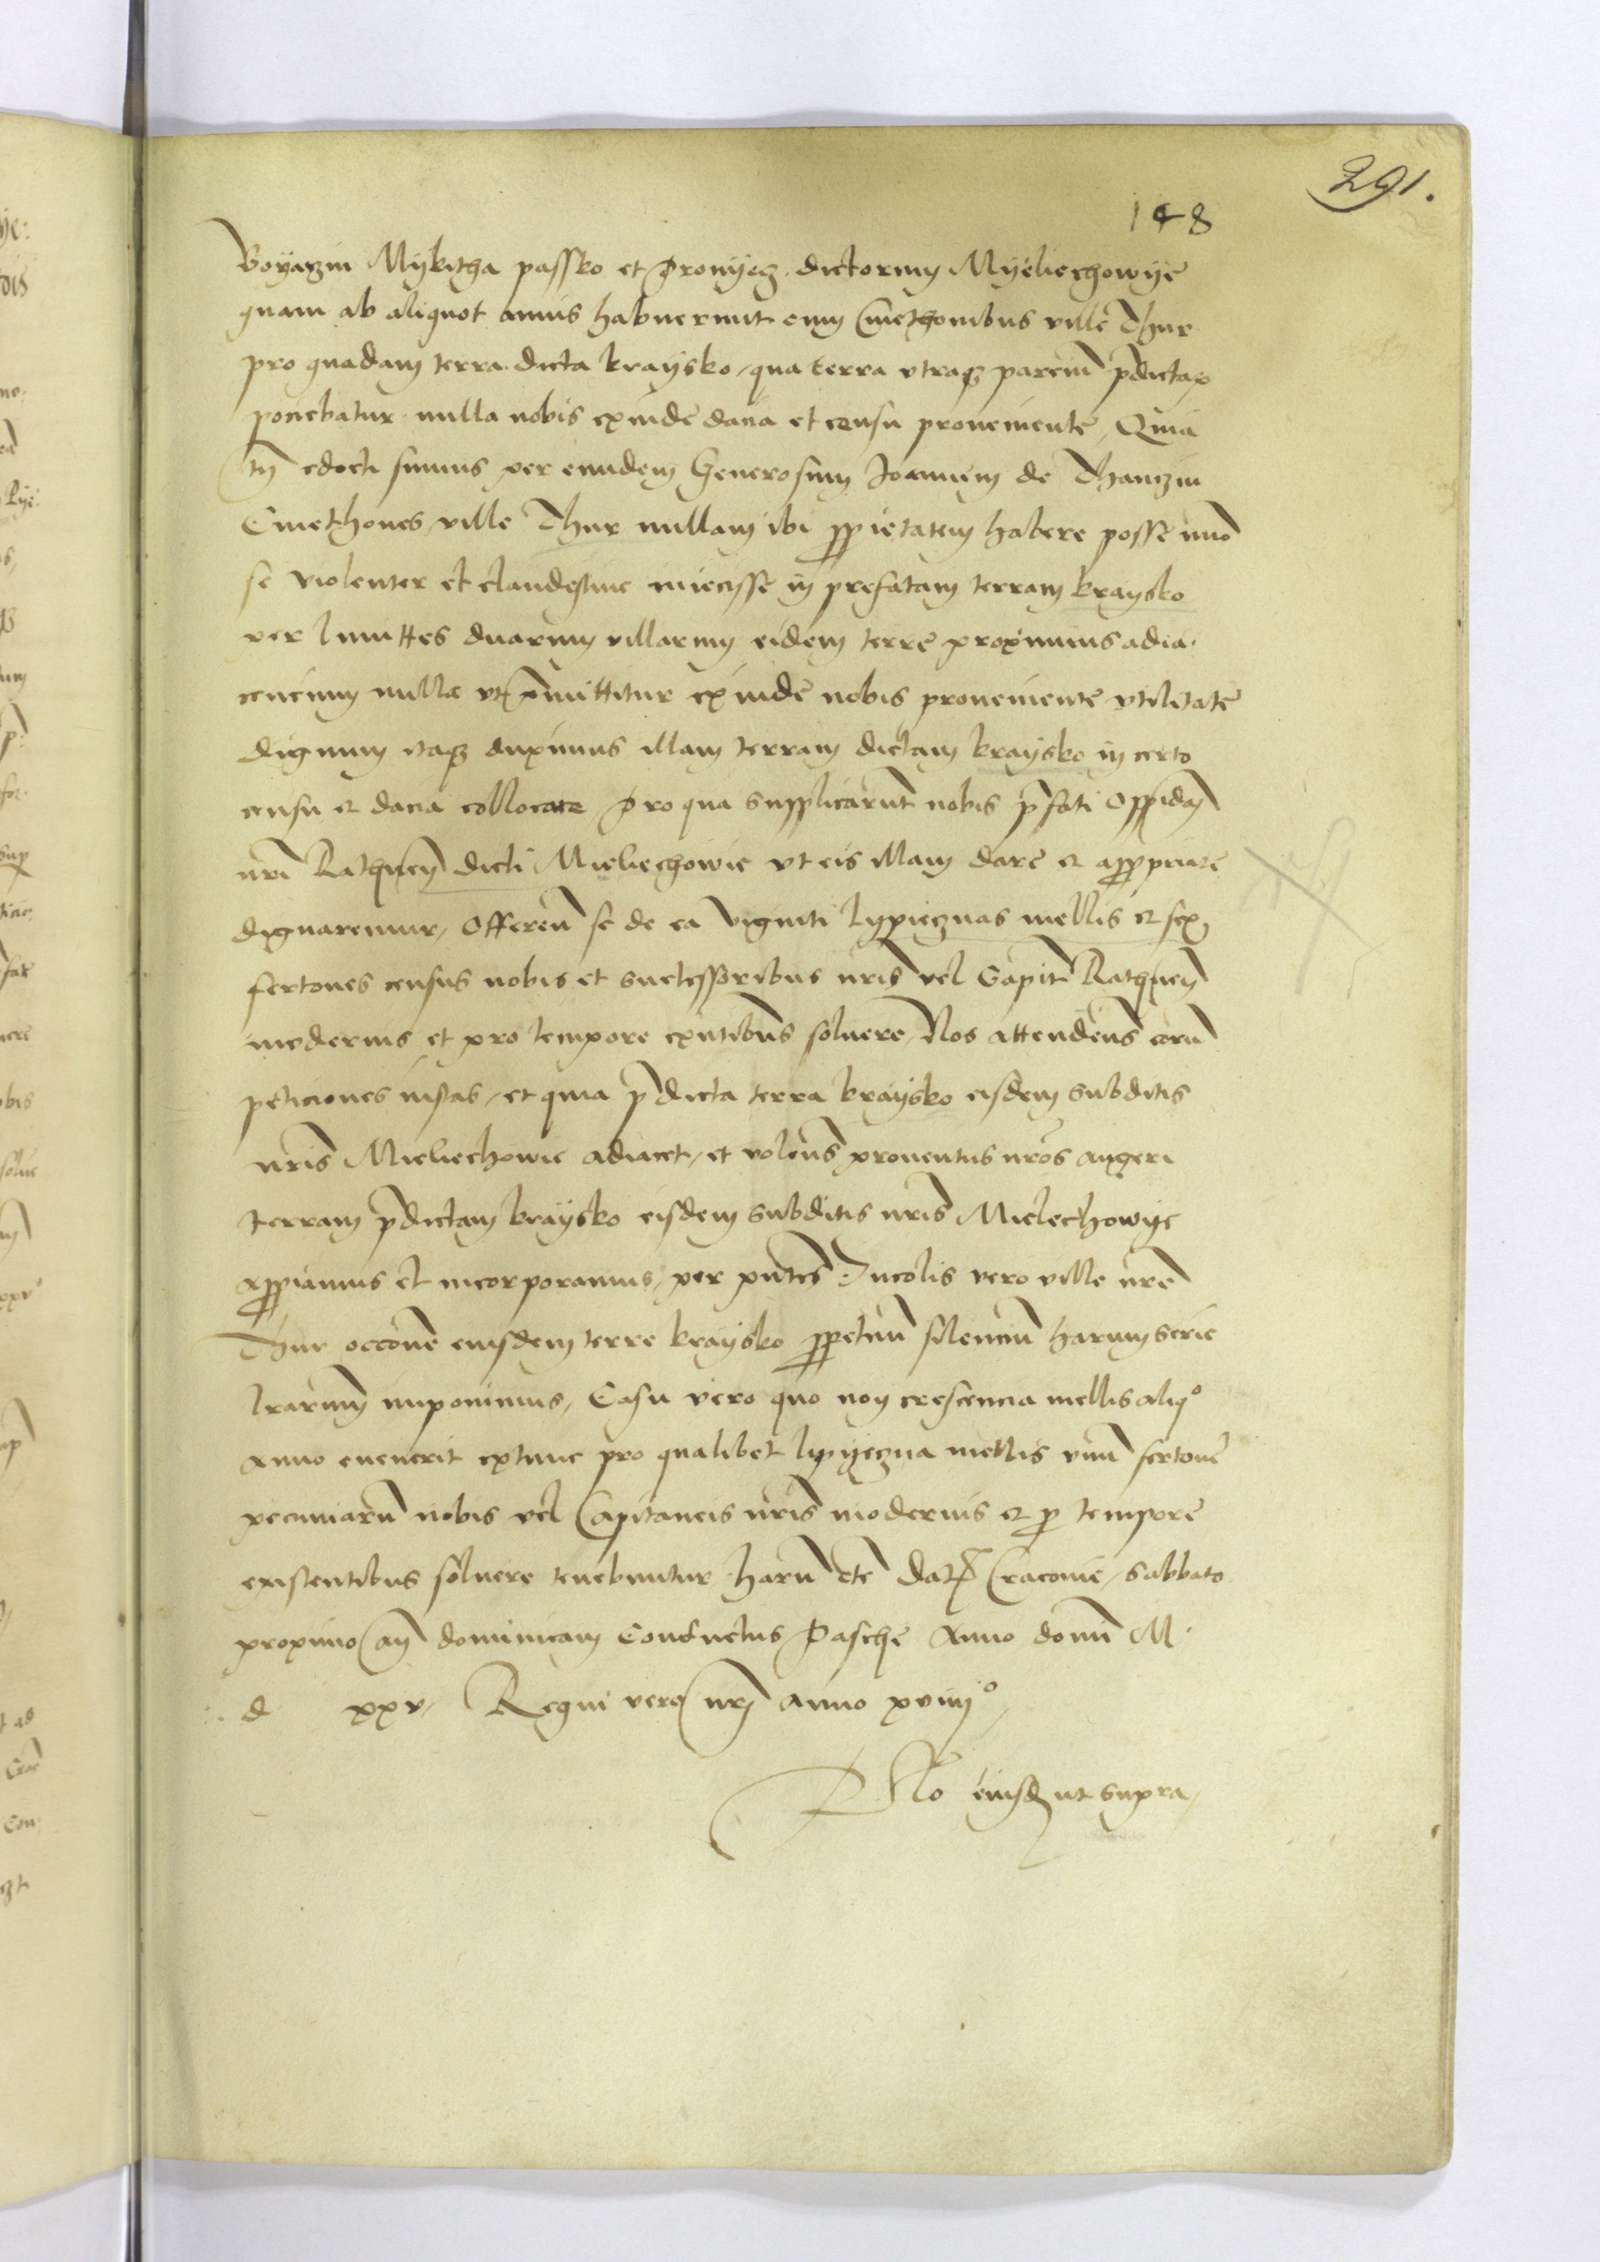 291.
148
Boyarzin Mykitha passko et Pronyecz dictorum Myeliechowye
quam ab aliquot annis habuerunt cum Cmethonibus ville Thur
pro quadam terra dicta kraysko, qua terra vtraqz parcium pdictar
ponebatur nulla nobis exinde dacia et censu proueniente, Quia
tn edocti sumus per eundem Generosum Joannem de Thanczin
Cmethones ville Thur nullam ibi pprietatem habere posse imo
se violenter et clandestine iniecisse in prefatam terram kraysko
per limittes duarum villarum eidem terre proximius adia-
cencium nulla vt pmittitur exinde nobis proueniente vtilitate
dignum itaqz duximus illam terram dictam kraysko in certo
censu et dacia collocare Pro qua supplicarunt nobis pfati oppidan
nri Rathnen dicti Mieliechowie vt eis illam dare et appriare
dignaremur, Offeren se de ea viginti lypiecznas mellis et sex
fertones census nobis et successoribus nris vel Capit Rathnen
modernis et pro tempore exntibus soluere, Nos attendens eoru
peticiones iustas, et quia pdicta terra kraysko eisdem subditis
nris Mieliechowie adiacet, et volens prouentus nros augeri
terram pdictam kraysko eisdem subditis nris Mielechowye
appiamus et incorporamus, per pntes Incolis vero ville nre
Thur occone eiusdem terre kraysko ppetuu silencium harum serie
lrarum imponimus, Casu vero quo non crescencia mellis aliqo
anno euenerit extunc pro qualibet lipyeczna mellis vnu fertone
pecuniaru nobis vel Capitaneis nris modernis et p tempore
existentibus soluere tenebuntur haru etc Dat Cracouie, sabbato
proximo an dominicam Conductus Pasche Anno domi M
d xxv, Regni vero nri anno xviiijo
Rlo eiusd ut supra,